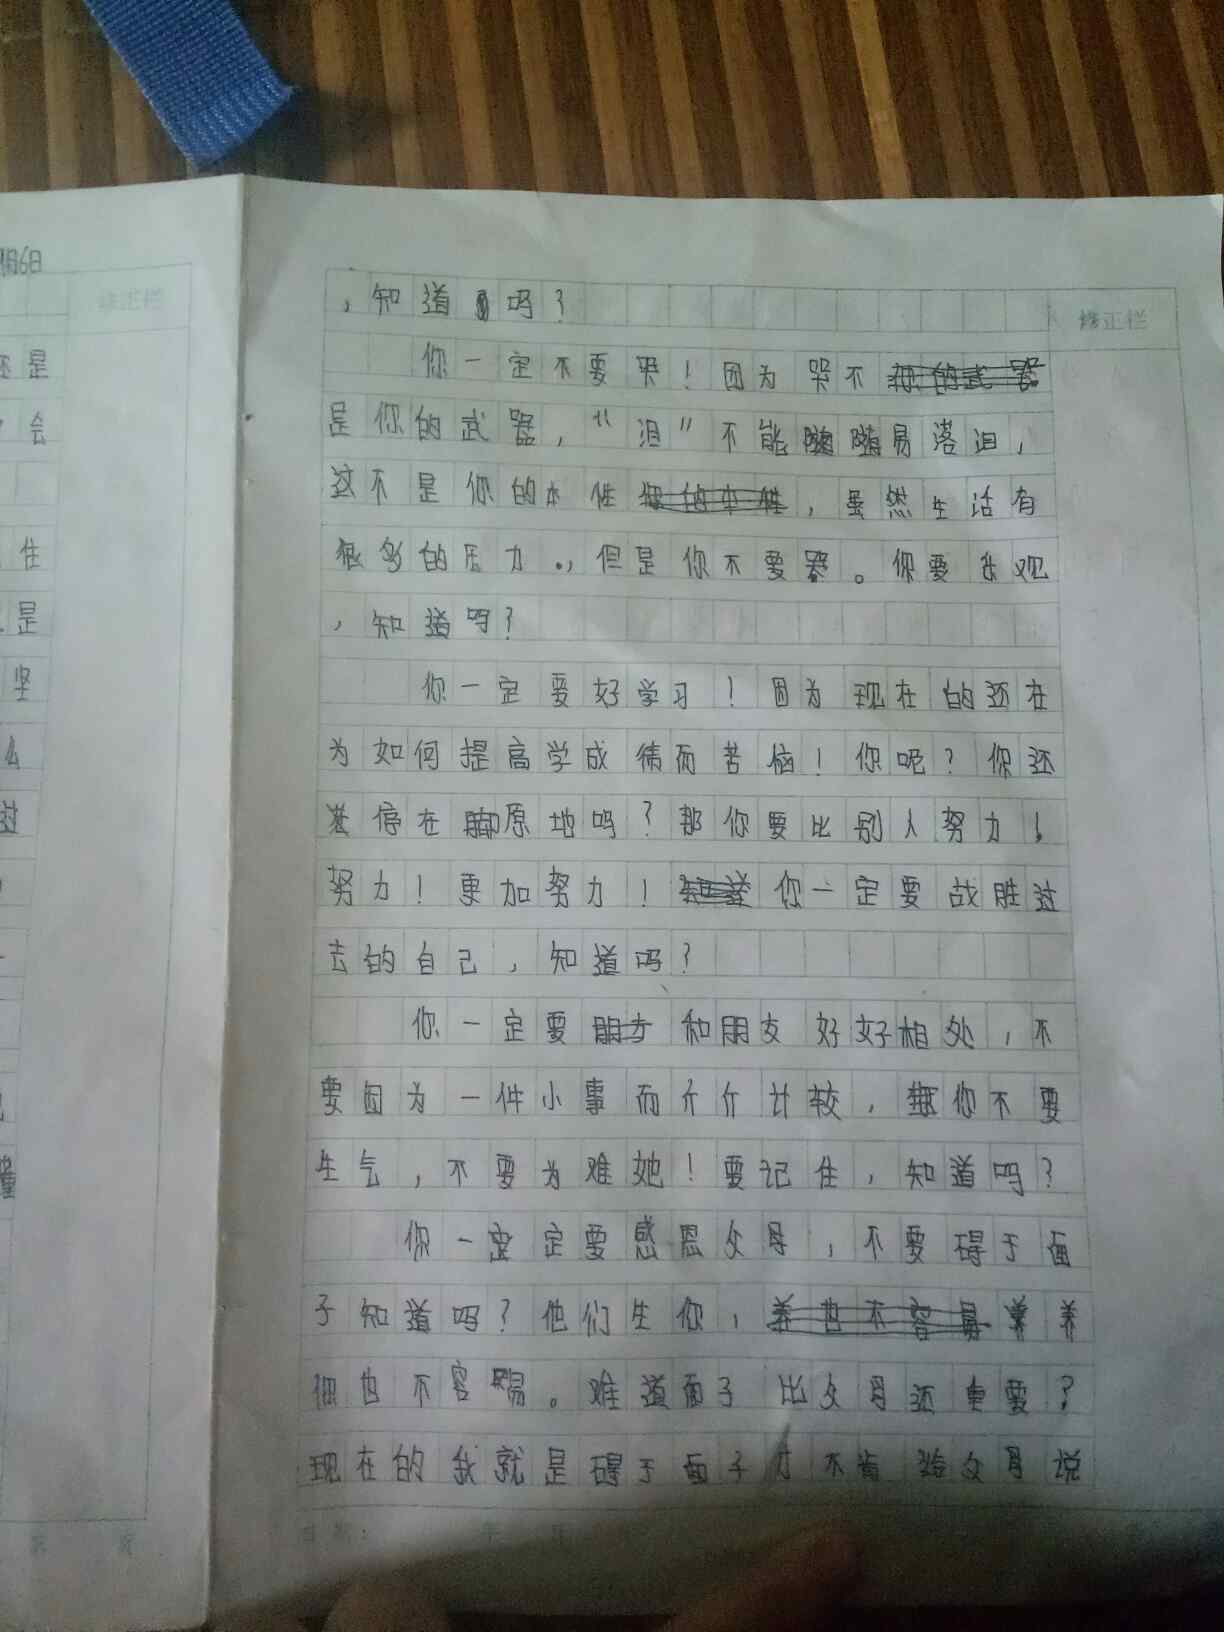 月6日
修正栏
还是
会
住
是
坚
么
过
修正栏
，知道吗？
你一定不要哭！因为哭不
是你的武器，“泪”不能随易落泪，
这不是你的本性，虽然生活有
很多的压力，但是你不要哭。你要乐观
，知道吗？
你一定要好学习！因为现在的还在
为如何提高学成绩而苦恼！你呢？你还
停在原地吗？那你要比别人努力！
努力！更加努力！你一定要战胜过
去的自己，知道吗？
你一定要和朋友好好相处，不
要因为一件小事而斤斤计较，你不要
生气，不要为难她！要记住，知道吗？
你一定定要感恩父母，不要碍于面
子知道吗？他们生你，养
你也不容易。难道面子比父母还重要？
现在的我就是碍于面子才不肯给父母说